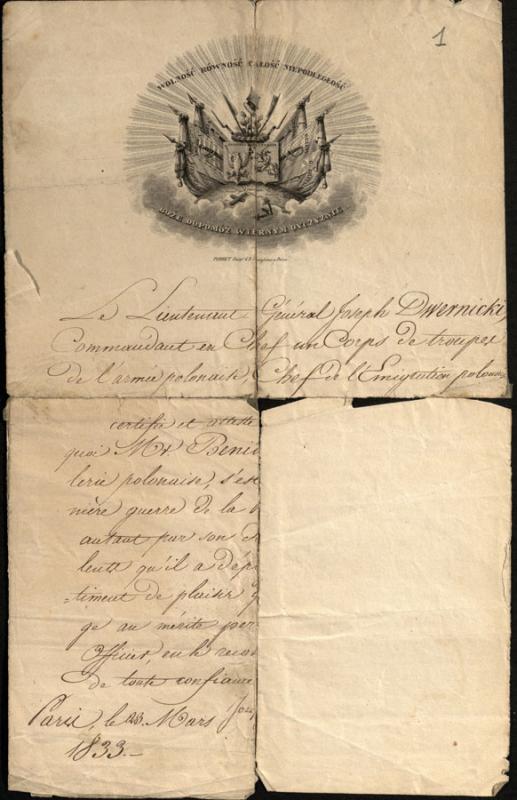 1
WOLNOŚĆ RÓWNOŚĆ CAŁOŚĆ NIEPODLEGŁOŚĆ
BOŻE DOPOMÓŻ WIERNYM OYCZYZNIE
Le Lieutenant Général Joseph Dwernicki,
Commandant en Chef un Corps de troupes
de l'armée polonaise, Chef de l'Emigration polonaise
certifie et atteste
quoi Mr Beni
lerie polonaise, s'est
nière guerre de la
autant par son
lents qu'il a dép
=timent de plaisir q
ge au mérite per
Officier, en le recom
de toute confiance
Paris, le 23 Mars Jos
1833.-